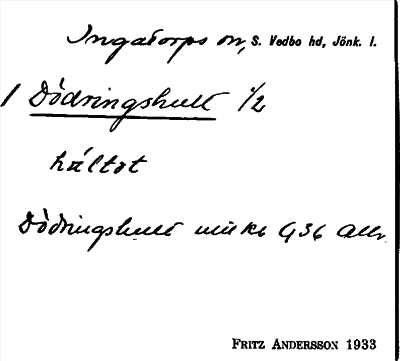 Ingatorps sn, S. Vedbo hd, Jönk. l.
1 Dödringshult 1/2
háltet
Dödringshult
FRITZ ANDERSSON 1933